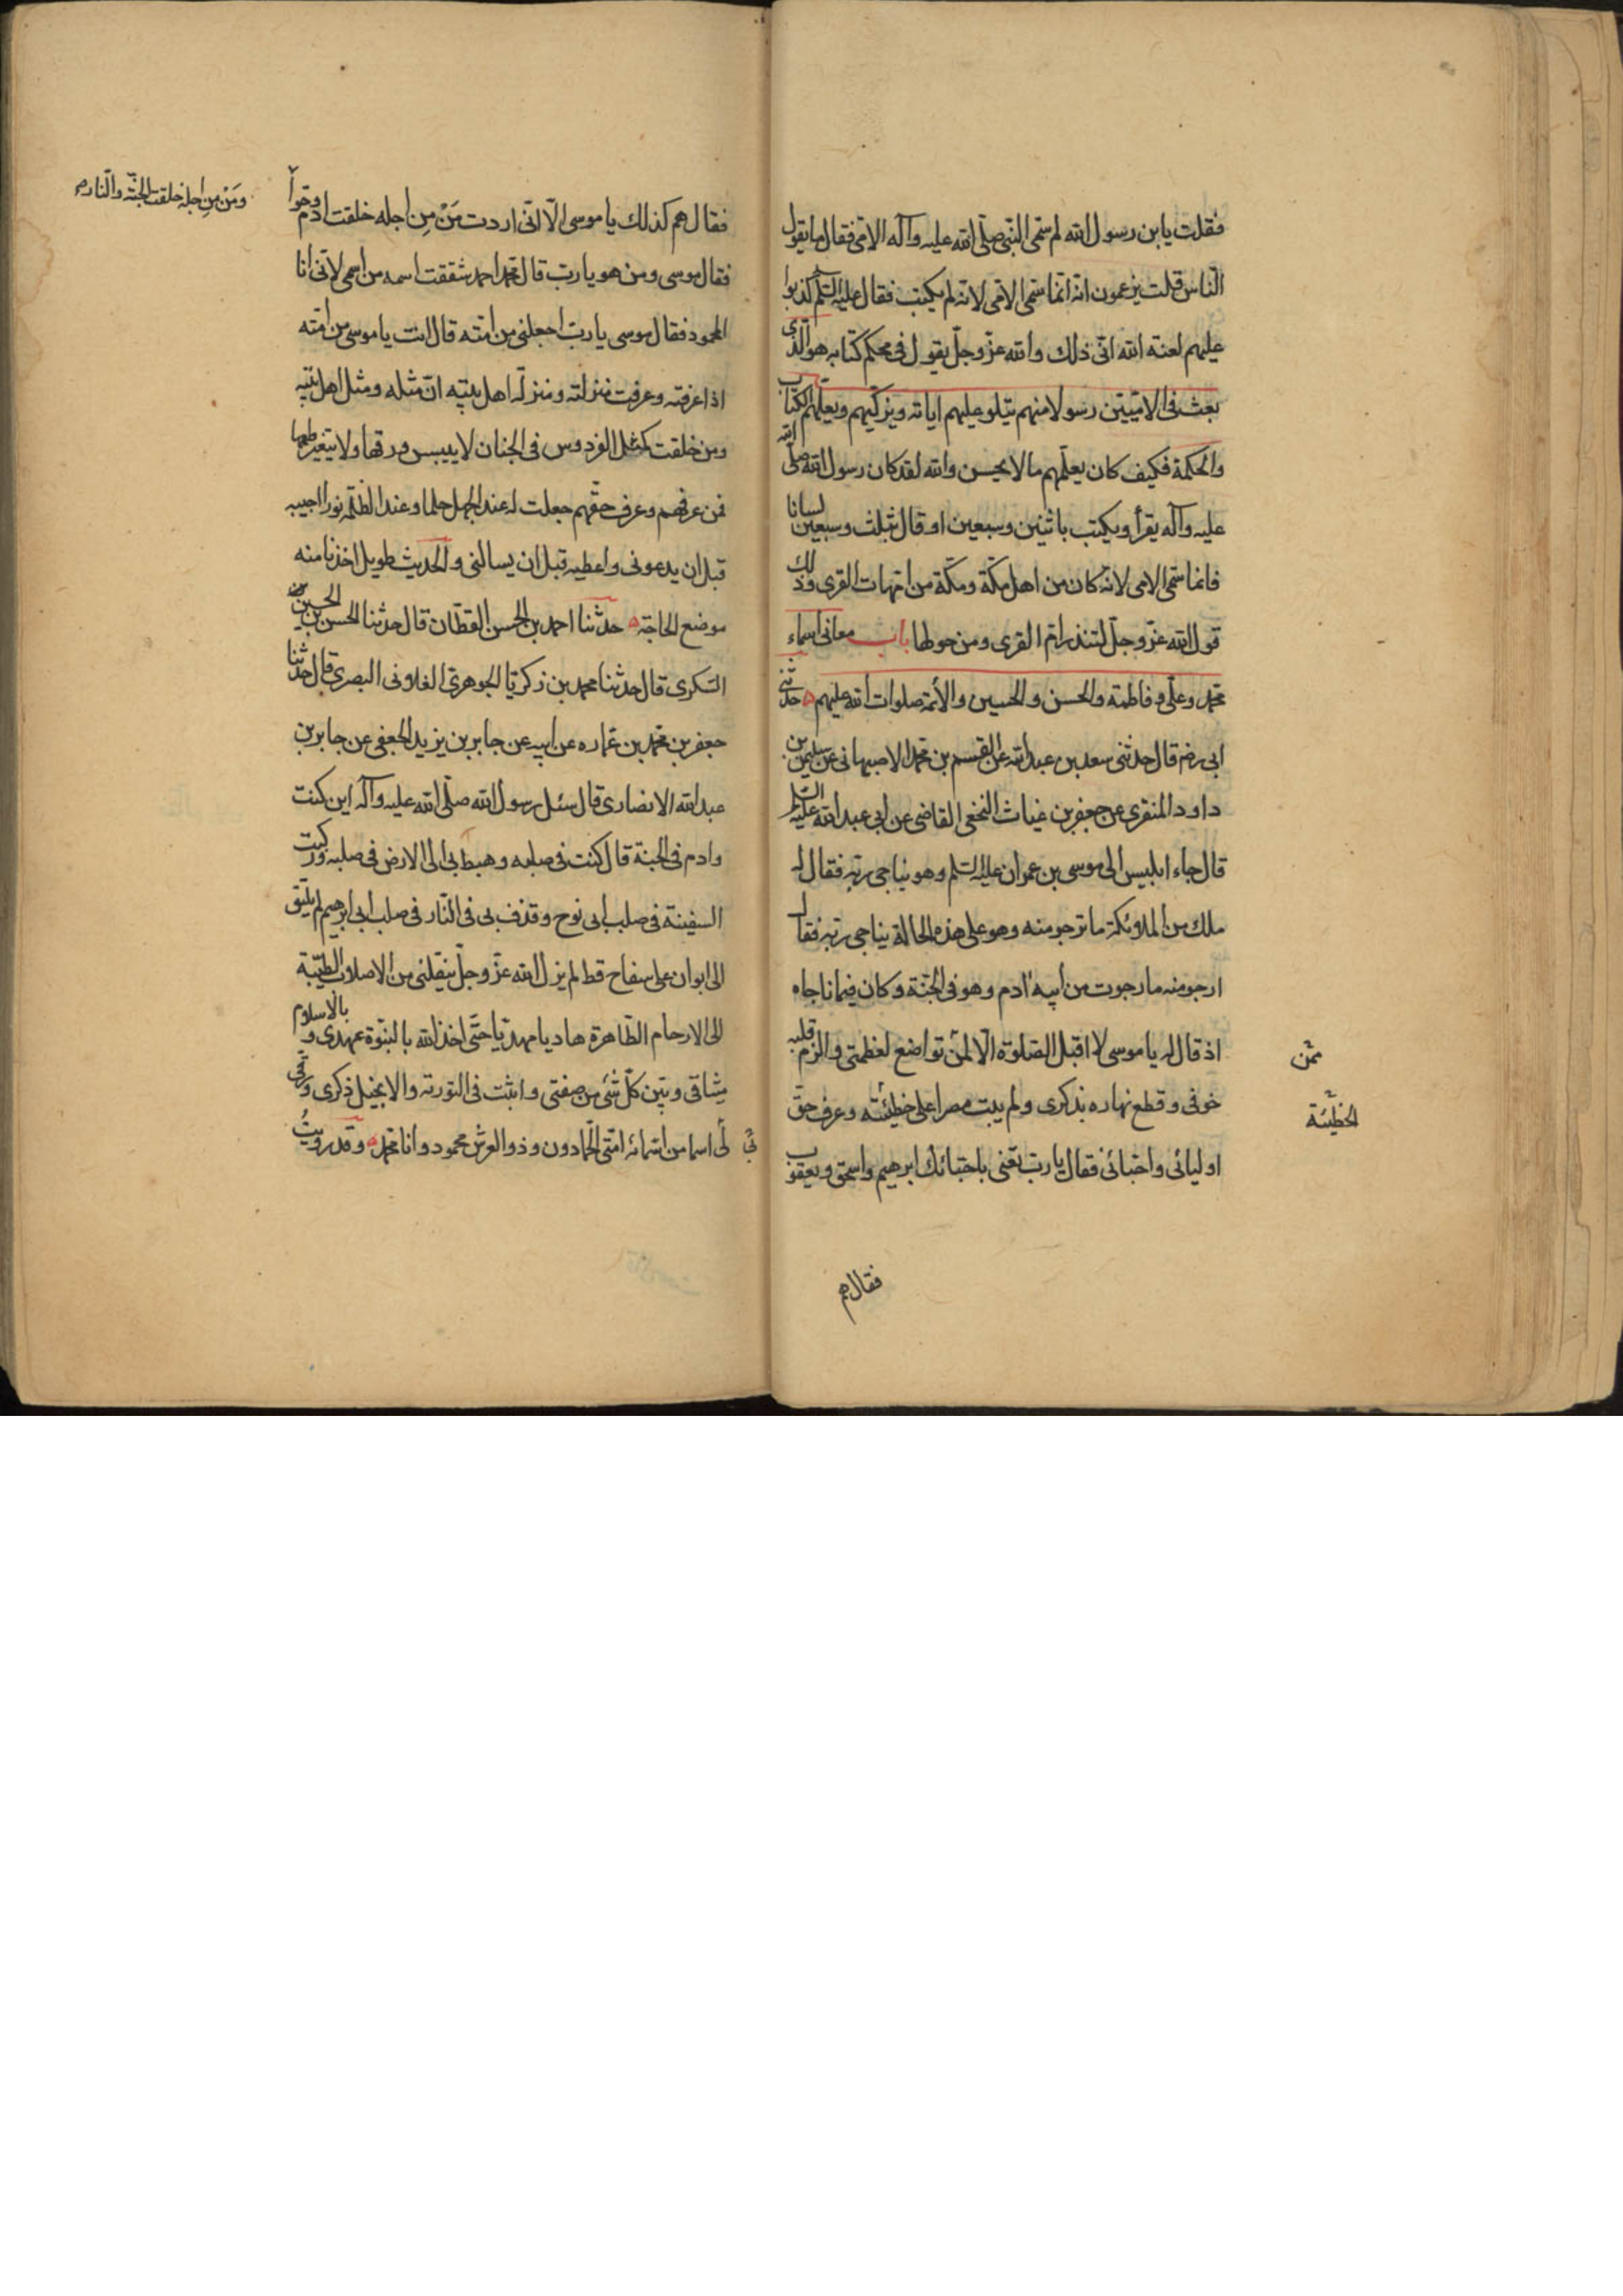 فقلت يابن رسول الله لم سمّى النبى صلّى الله عليه وآله الامّى فقال ما يقول
النّاس قلت يزعمون انه انّما سمّى الامّى لانه لم يكتب فقال عليه السّلم كذبوا
عليهم لعنة الله انّى ذلك والله عزّ وجلّ يقول فى محكم كتابه هو الّذى
بعث فى الامّيّين رسولا منهم يتلو عليهم اياته ويزكّيهم ويعلّمهم الكتاب
والحكمة فكيف كان يعلّمهم ما لا يحسن والله لقد كان رسول الله صلّى الله
عليه وآله يقرأ ويكتب باثنين وسبعين او قال بثلث وسبعين لسانا
فانما سمّى الامى لانّه كان من اهل مكّة ومكّة من امّهات القرى وذلك
قول الله عزّ وجلّ لتنذر امّ القرى ومن حولها باب معانى اسماء
محمّد وعلّى وفاطمة والحسن والحسين والأئمة صلوات الله عليهم حدثنى
ابى رضه قال حدثنى سعد بن عبد الله عن القسم بن محمّد الاصبهانى عن سليمن بن
داود المنقرى عن جعفر بن غياث النخعى القاضى عن ابى عبد الله عليه السّلم
قال جاء ابليس الى موسى بن عمران عليه السّلم وهو يناجى ربّه فقال له
ملك من الملائكة ما ترجو منه وهو على هذه الحالة يناجى ربّه فقال
ارجو منه ما رجوت من أبيه ادم وهو فى الجنّة وكان فيما ناجاه
اذ قال له يا موسى لا اقبل الصّلوة الّا لمن تواضع لعظمتى والزم قلبه
ممّن
خوفى وقطع نهاره بذكرى ولم يبت مصرا على خطيئته وعرف حقّ
الخطيّئة
اوليائى واحبّائى فقال يا ربّ تعنى باحبّائك ابرهيم واسحق ويعقوب
فقال هم
فقال هم كذلك يا موسى الّا انّى اردت مَنْ مِن اجله خلقت ادم وحوّا
ومَنْ مِن اجله خلقت الجنّة والنّار
فقال موسى ومن هو يا ربّ قال محمّد احمد شققت اسمه من اسمى لانّى انا
المحمود فقال موسى يا ربّ اجعلنى من امّته قال انت يا موسى من امّته
اذا عرفته وعرفت منزلته ومنزلة اهل بيته انّ مثله ومثل اهل بيته
ومن خلقت كمثل الفردوس فى الجنان لا ييبس ورقها ولا يتغير طعمها
فمن عرفهم وعرف حقّهم جعلت له عند الجهل حلما وعند الظلمة نورا اجيبه
قبل ان يدعونى واعطيه قبل ان يسالنى والحديث طويل اخذنا منه
موضع الحاجة حدثنا احمد بن الحسن القطّان قال حدثنا الحسن بن
السكرى قال حدثنا محمد بن زكريّا الجوهرى الغلابى البصرى قال حدثنا
جعفر بن محمّد بن عماره عن ابيه عن جابر بن يزيد الجعفى عن جابر بن
عبد الله الانصارى قال سئل رسول الله صلّى الله عليه وآله اين كنت
وادم فى الجنة قال كنت فى صلبه وهبط بى الى الارض فى صلبه وركبت
السفينة فى صلب ابى نوح وقذف بى فى النّار فى صلب ابى ابرهيم لم يلتق
الى ابوان على سفاح قط لم يزل الله عزّ وجلّ ينقلنى من الاصلاب الطيّبة
الى الارحام الطّاهرة هاديا مهديّا حتّى اخذ الله بالنبوّة عهدى و بالاسلام
ميثاقى وبيّن كلّ شئ من صفتى واثبت فى التوريه والانجيل ذكرى ورقى
لى اسما من اسمائه امّتى الحمّادون وذو العرش محمود وانا محمّد وقد رويتُ